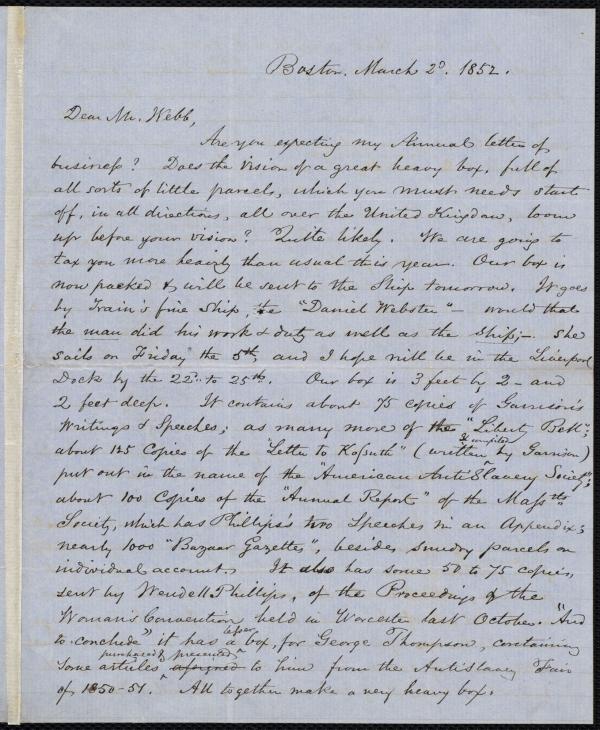 Boston. March 2d. 1852.
Dear Mr. Webb,
Are you expecting my Annual letter of
business? Does the vision of a great heavy box, full of
all sorts of little parcels, which you must needs start
off, in all directions, all over the United Kingdom, loom
up before your vision? Quite likely. We are going to
tax you more heavily than usual this year. Our box is
now packed & will be sent to the Ship tomorrow. It goes
by Train's fine Ship, the "Daniel Webster" - would that
the man did his work & duty as well as the ship; -. She
sails on Friday the 5th, and I hope will be in the Liverpool
Dock by the 22d. to 25th. Our box is 3 feet by 2 - and
2 feet deep. It contains about 75 copies of Garrison's
Writings & Speeches; as many more of the "Liberty Bell";
about 125 Copies of the "Letter to Kossuth" (written & compiled by Garrison)
put out in the name of the "American Anti Slavery Society";
about 100 Copies of the "Annual Report" of the Massts.
Society, which has Phillips's two Speeches in an Appendix;
nearly 1000 "Bazaar Gazettes", besides sundry parcels on
individual account. It also has some 50 to 75 copies,
sent by Wendell Phillips, of the Proceedings of the
Woman's Convention held in Worcester last October. "And
to conclude" it has a box, for George Thompson, containing
some articles purchased & presented assigned to him from the Antislavery Fair
of 1850-51. All together make a very heavy box.